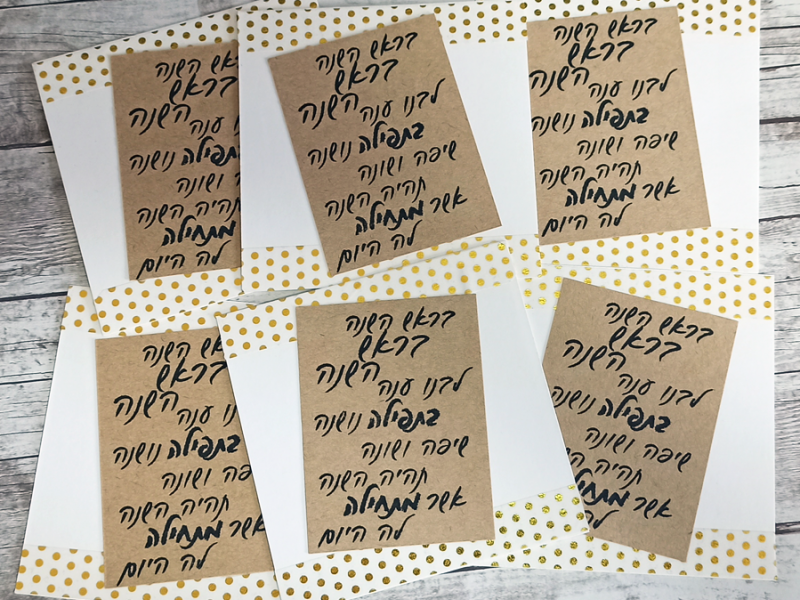 בראש השנה
בראש
השנה
לבנו ענה
בתפילה נושנה
שיפה ושונה
תהיה השנה
אשר מתחילה
לה היום
בראש השנה
בראש
השנה
לבנו ענה
בתפילה נושנה
שיפה ושונה
תהיה השנה
אשר מתחילה
לה היום
השנה
בראש
השנה
ענה
בתפילה נושנה
ושונה
תהיה השנה
מתחילה
לה היום
בראש השנה
בראש
השנה
לבנו ענה
בתפילה נושנה
שיפה ושונה
תהיה השנה
אשר מתחילה
לה
בראש השנה
בראש
השנה
לבנו ענה
בתפילה נושנה
שיפה ושונה
תהיה השנה
אשר מתחילה
לה היום
השנה
בראש
השנה
ענה
בתפילה נושנה
ושונה
תהיה השנה
מתחילה
לה היום